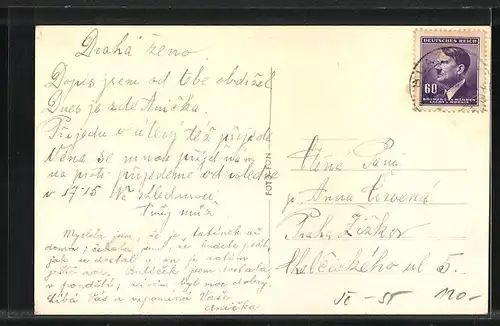 Drahá ženo
Dopis jsem od tebe obdržel
Dnes je zde Anička.
Přijedu v úterý též přijede
Věna se mnou přijď nám
na proti přijedeme od
v 17·15 Na shledanou
Tvůj muž
Myslela jsem, že je tatínek už
doma; čekala jsem, že budete psát,
jak dostal a on je zatím
ještě Balíček jsem dostala
v pondělí; byl moc dobrý.
Líbá Vás a vzpomíná Vaše
Anička
FOTO-FON
DEUTSCHES REICH
60
BÖHMEN UND MÄHREN
ČECHY A MORAVA
Ctěná Paní
p. Anna Červená
Praha Žižkov
Chelčického ul 5.
110-